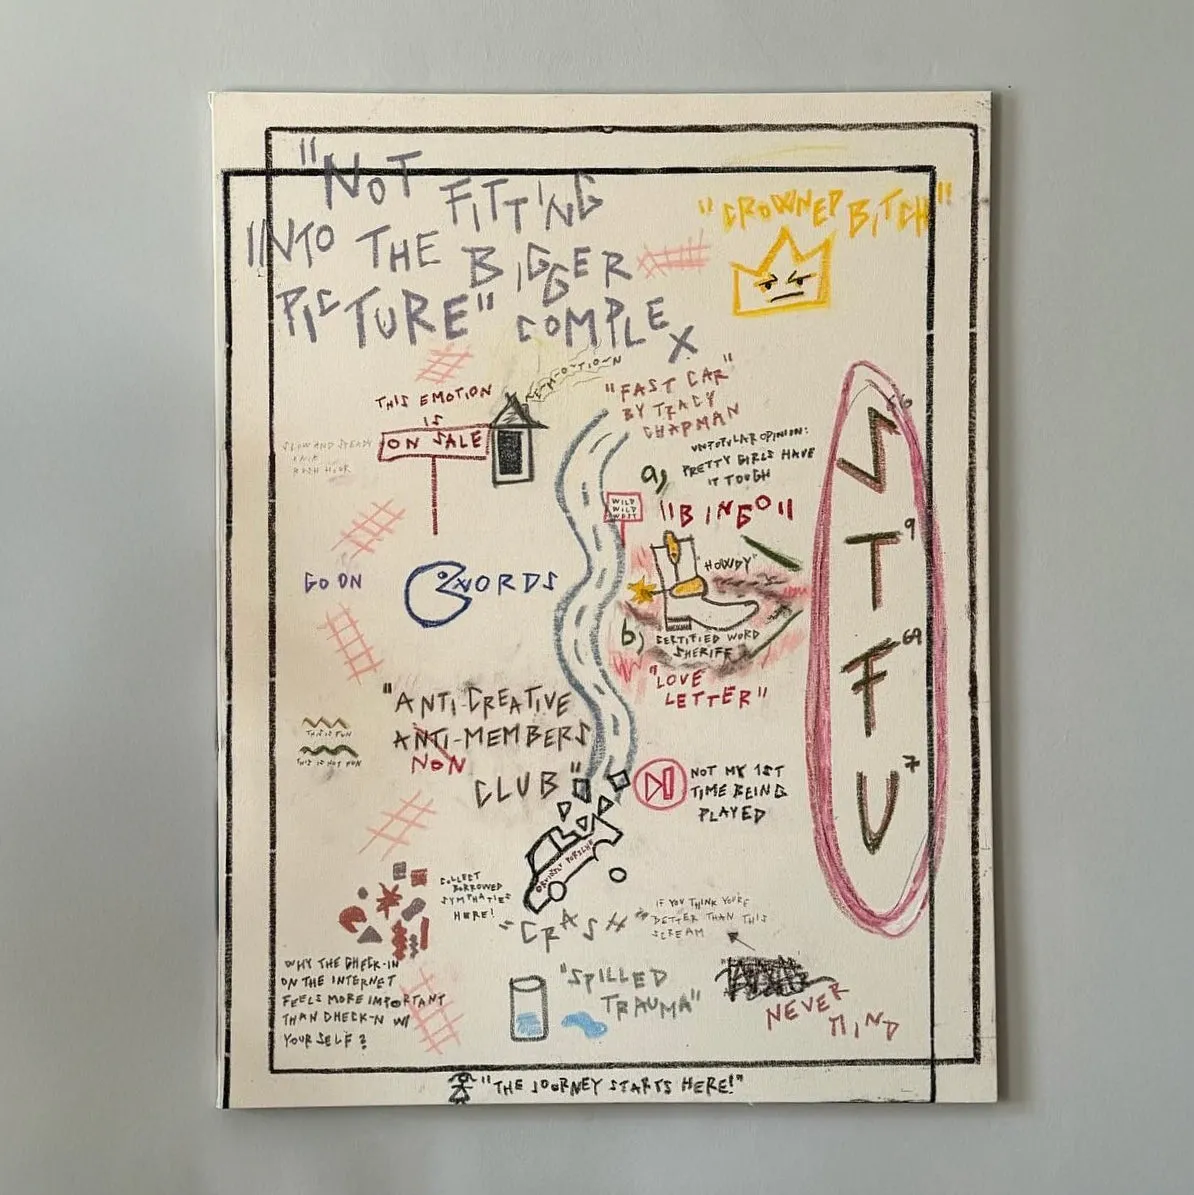 "NOT FITTING
"INTO THE BIGGER
PICTURE" COMPLEX
"CROWNED BITCH"
THIS EMOTION
IS
ON SALE
SLOW AND STEADY
RUSH HOUR
EMOTION
"FAST CAR"
BY TRACY
CHAPMAN
UNPOPULAR OPINION:
a) PRETTY GIRLS HAVE
IT TOUGH
WILD
WILD
WEST
"BINGO"
"HOWDY"
b) CERTIFIED WORD
SHERIFF
"LOVE
LETTER"
GO ON
WORDS
"ANTI-CREATIVE
ANTI-MEMBERS
NON
CLUB"
THIS IS FUN
THIS IS NOT FUN
NOT MY 1ST
TIME BEING
PLAYED
S 66
T 9
F 69
U 7
COLLECT
BORROWED
SYMPHATIES
HERE!
"CRASH"
IF YOU THINK YOU'RE
BETTER THAN THIS
SCREAM
WHY THE CHECK-IN
ON THE INTERNET
FEELS MORE IMPORTANT
THAN CHECK-N W/
YOURSELF?
"SPILLED
TRAUMA"
NEVER
MIND
"THE JOURNEY STARTS HERE!"